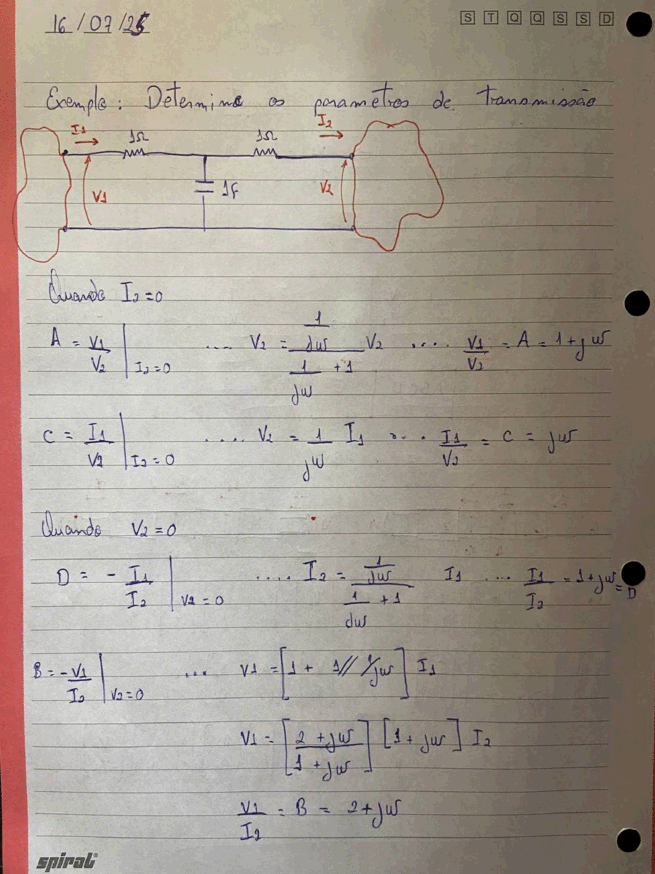 16/07/25
S T Q Q S S D
Exemplo: Determine os parametros de transmissão
I1 1Ω 1Ω I2
V1 1F V2
Quando I2=0
A = V1/V2 | I2=0 .... V2 = (1/jw)/(1/jw + 1) V2 .... V1/V2 = A = 1+jw
C = I1/V2 | I2=0 .... V2 = 1/jw I1 ... I1/V2 = C = jw
Quando V2=0
D = - I1/I2 | V2=0 .... I2 = (1/jw)/(1/jw + 1) I1 ... I1/I2 = 1+jw = D
B = -V1/I2 | V2=0 ... V1 = [1 + 1// 1/jw] I1
V1 = [(2+jw)/(1+jw)] [1+jw] I2
V1/I2 = B = 2+jw
spiral